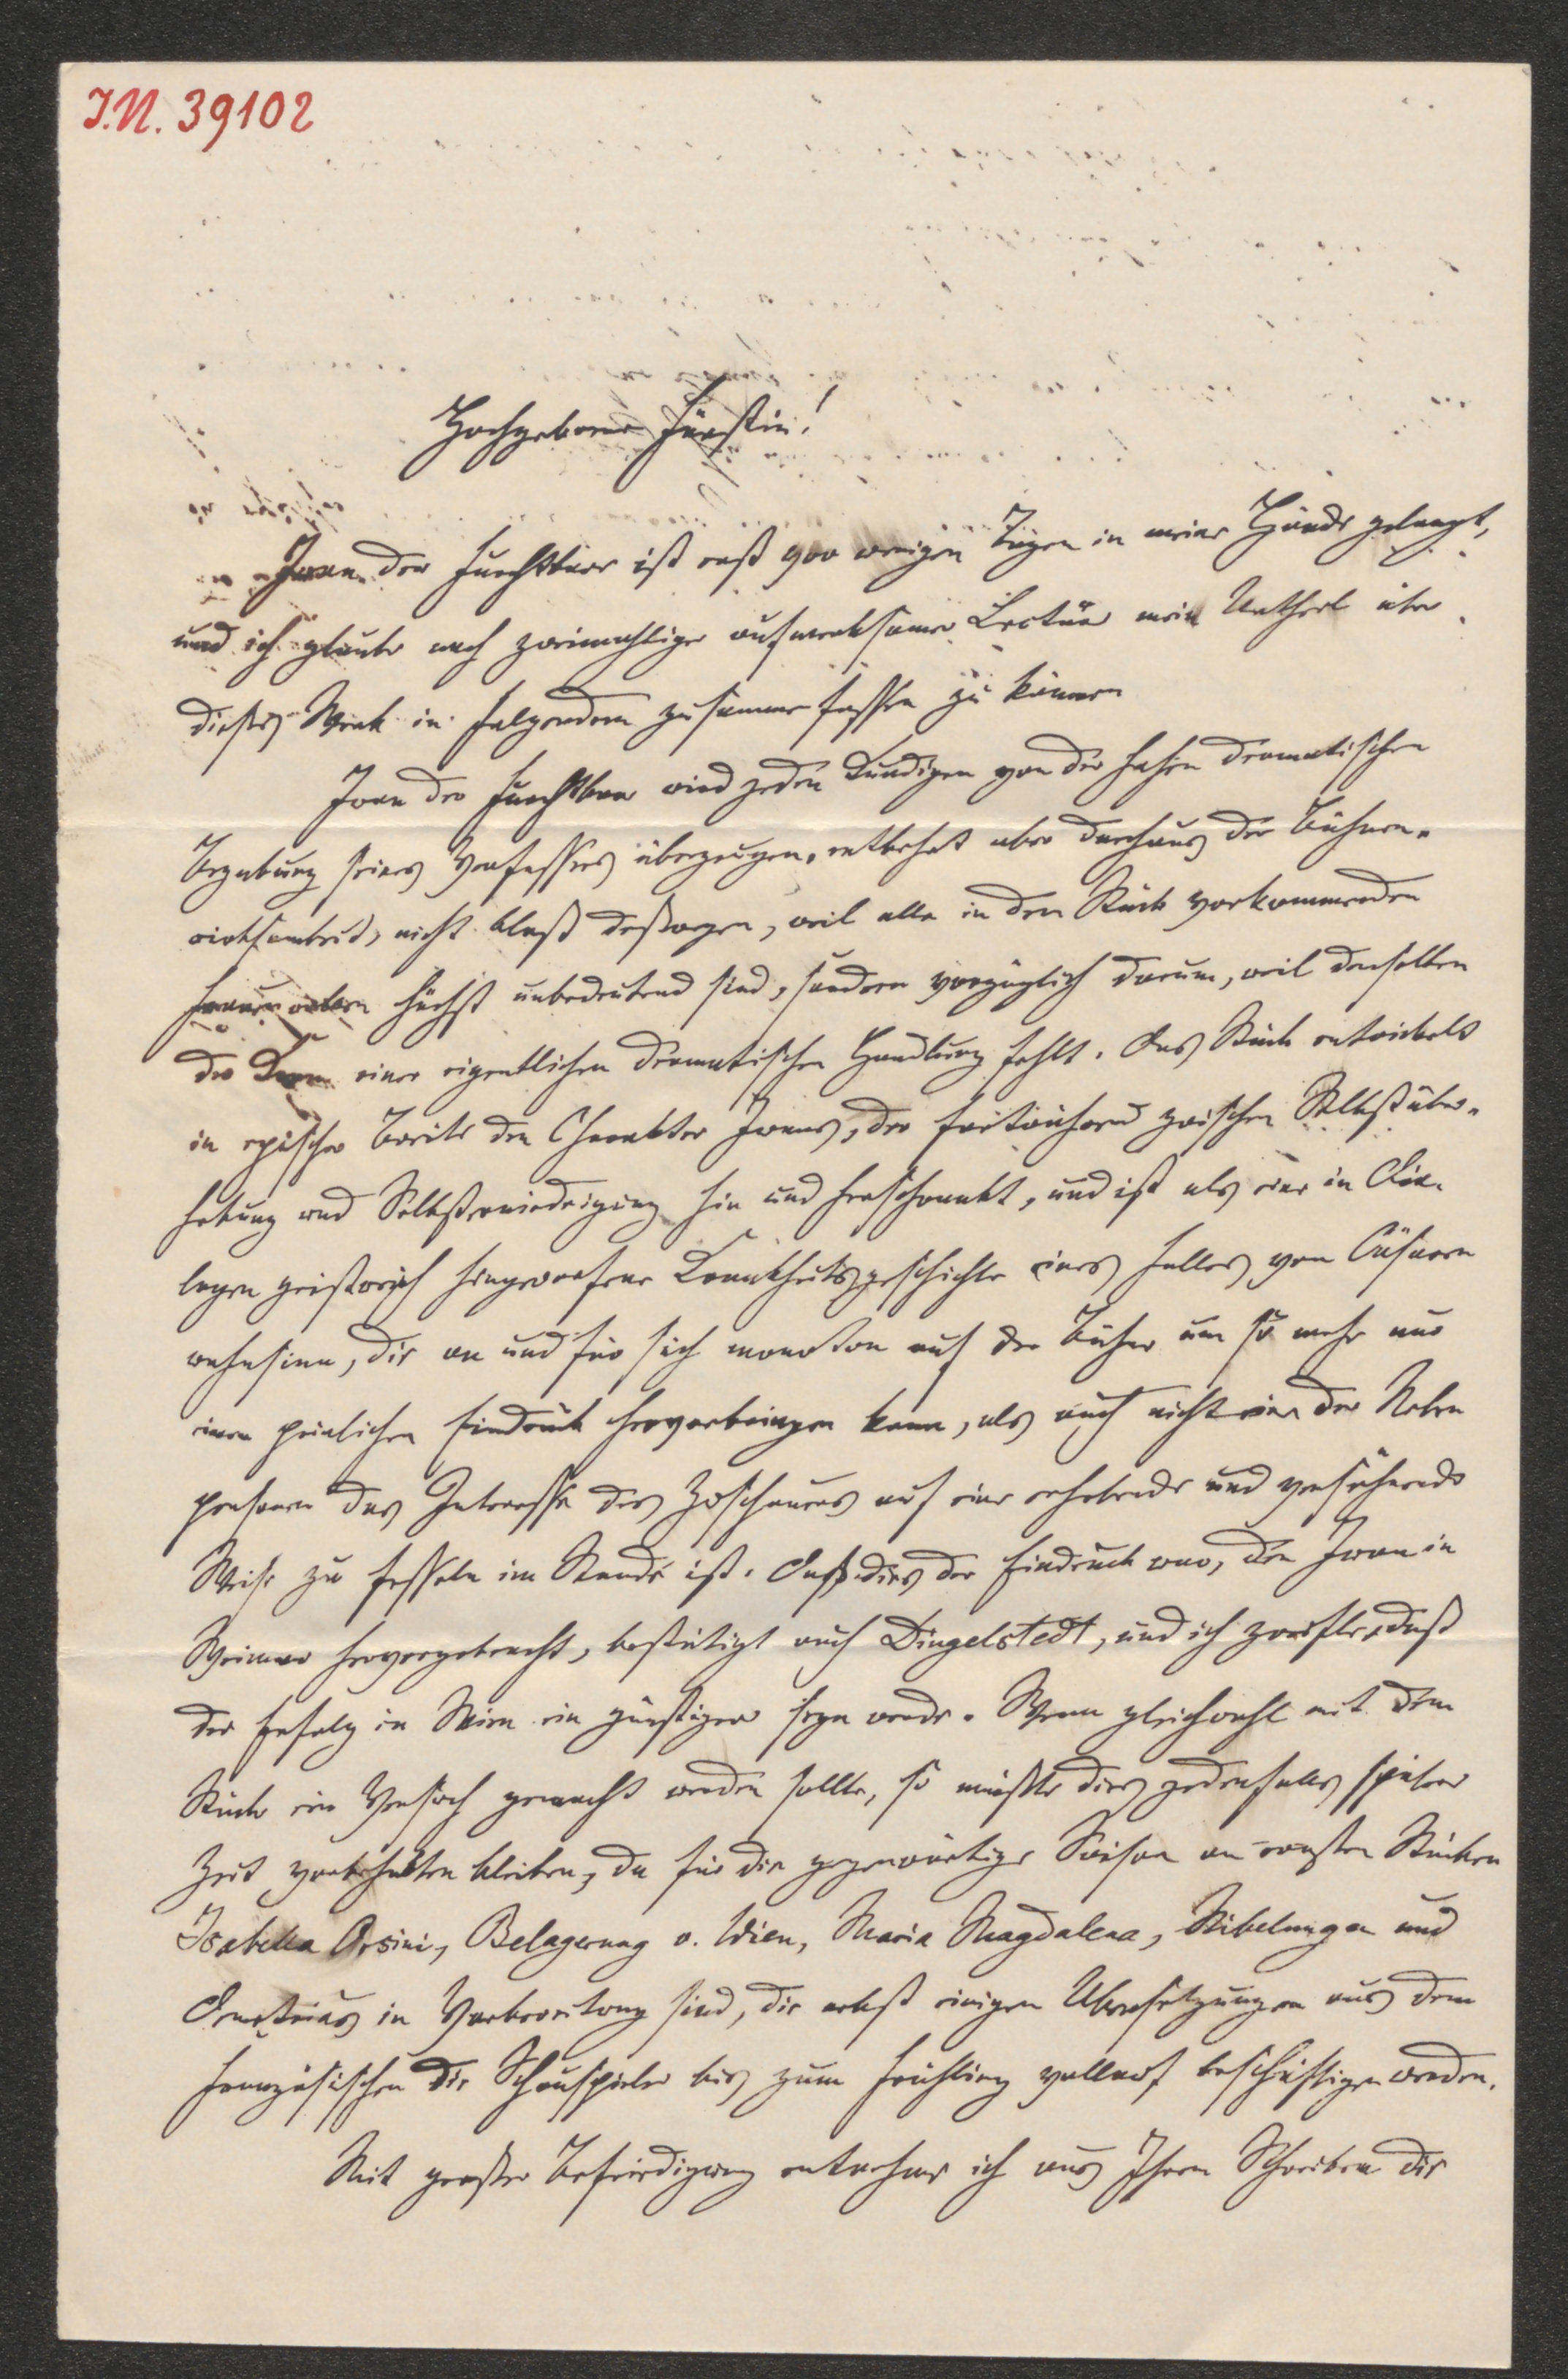 I.N. 39102
Hochgeborne Fürstin!
Iwan der Furchtbare ist erst vor wenigen Tagen in meine Hände gelangt,
und ich glaube nach zweimahliger aufmerksamer Lectüre mein Urtheil über
dieses Werk in Folgendem zusammenfassen zu können
Iwan der Furchtbare wird jeden Kundigen von der hohen dramatischen
Begabung seines Verfassers überzeugen, entbehrt aber durchaus der Bühnen-
wirksamkeit, nicht bloß deßwegen, weil alle in dem Stück vorkommenden
Frauenrollen höchst unbedeutend sind, sondern vorzüglich darum, weil demselben
der Kern einer eigentlichen dramatischen Handlung fehlt. Das Stück entwickelt
in epischer Breite den Charakter Iwans, der fortwährend zwischen Selbstüber-
hebung und Selbsterniedrigung hin und herschwankt, und ist als eine in Dia-
logen geistreich hingeworfene Krankheitsgeschichte eines Falles von Cäsaren
wahnsinn, die an und für sich monoton auf der Bühne um so mehr nur
einen peinlichen Eindruck hervorbringen kann, als auch nicht eine der Neben
personen das Interesse des Zuschauers auf eine erhebende und versöhnende
Weise zu fesseln im Stande ist. Daß dies der Eindruck war, den Iwan in
Weimar hervorgebracht, bestätigt auch Dingelstedt, und ich zweifle, daß
der Erfolg in Wien ein günstiger seyn werde. Wenn gleichwohl mit dem
Stücke ein Versuch gemacht werden sollte, so müßte dies jedenfalls späterer
Zeit vorbehalten bleiben, da für die gegenwärtige Saison an ernsten Stücken
Isabella Orsini, Belagerung v. Wien, Maria Magdalena, Nibelungen und
Demetrius in Vorbereitung sind, die nebst einigen Übersetzungen aus dem
Französischen die Schauspieler bis zum Frühling vollauf beschäftigen werden.
Mit großer Befriedigung entnehme ich aus Ihrem Schreiben die